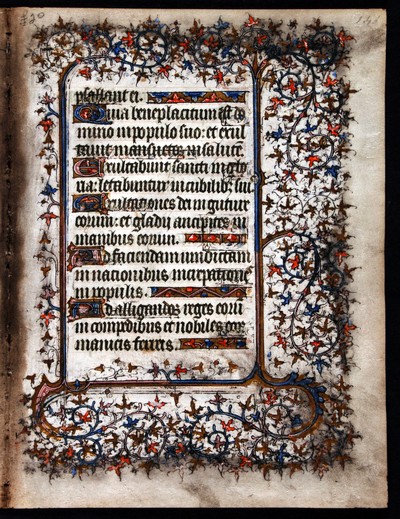 psallant ei.
Quia beneplacitum est do
mino in populo suo: et exul
tauit mansuetos in salute.
Exultabunt sancti in glo
ria: letabuntur in cubilibus suis
Exultationes dei in guttur
eorum: et gladii ancipites in
manibus eorum.
Ad faciendam uindictam
in nationibus increpationes
in populis.
Ad alligandos reges eorum
in compedibus et nobiles eor
in manicis ferreis.